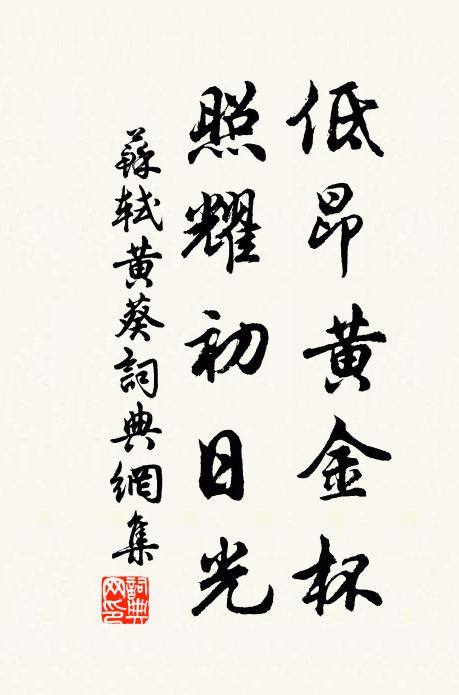 低昂黄金杯
照耀初日光
蘇軾黄葵詞典網集
詞典
网印